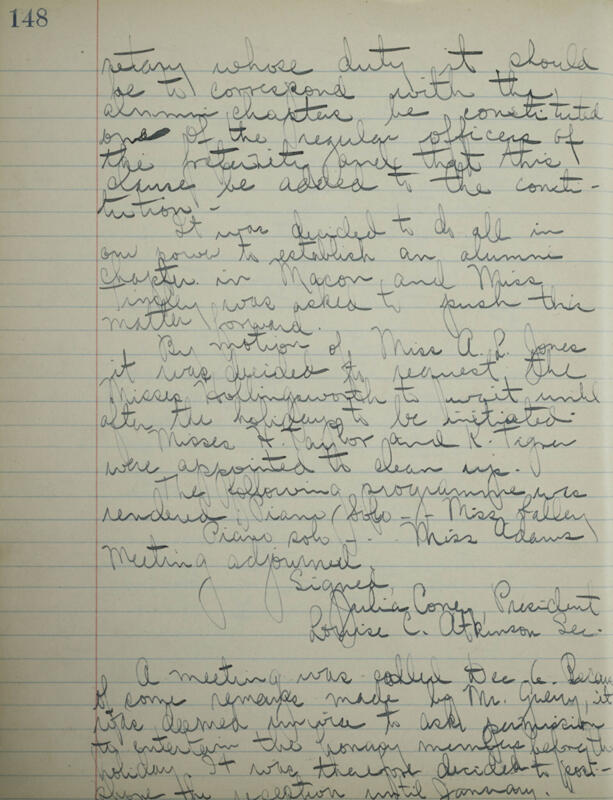 148
retary whose duty it should
be to correspond with the
alumni chapters be constituted
one of the regular officers of
the fraternity and that this
clause be added to the consti-
tution.-
It was decided to do all in
our power to establish an alumni
chapter in Macon and Miss
Tinsley was asked to push this
matter forward.
By motion of Miss A. L. Jones
it was decided to request the
Misses Hollingsworth to wait until
after the holidays to be initiated.
Misses H. Taylor and K. Tigner
were appointed to clean up.
The following programme was
rendered: Piano Solo - Miss Lalley
Piano solo - Miss Adams
Meeting adjourned.
Signed,
Julia Coney, President
Louise C. Atkinson Sec.
A meeting was called Dec 6.
of some remarks made by Mr. Guerry, it
was deemed unwise to ask permission
to entertain the honary members before the
holiday. It was therefore decided to post-
phone the reception until January.